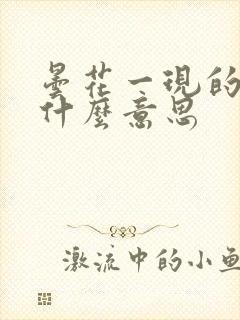 曇花一現的
什麼意思
激流中的小魚